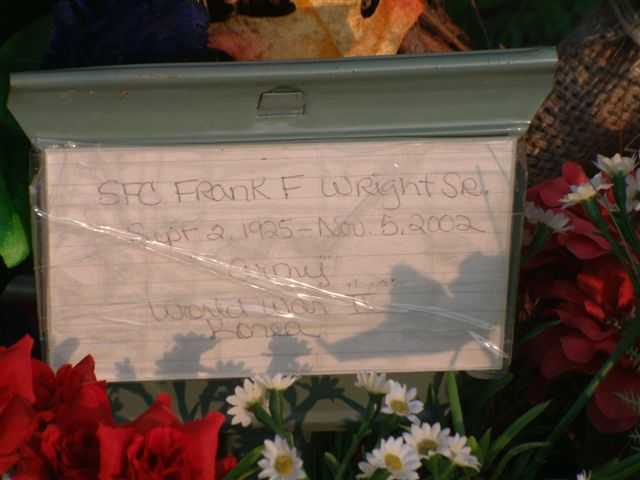 SFC Frank F Wright Sr.
Sept. 2, 1925 - Nov. 5, 2002
"Army"
World War II
Korea